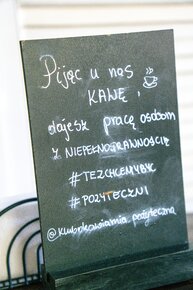 Pijąc u nas
KAWĘ,
dajesz pracę osobom
Z NIEPEŁNOSPRAWNOŚCIĄ
#TEŻCHCEMYBYĆ
#POŻYTECZNI
@klubokawiarnia pożyteczna